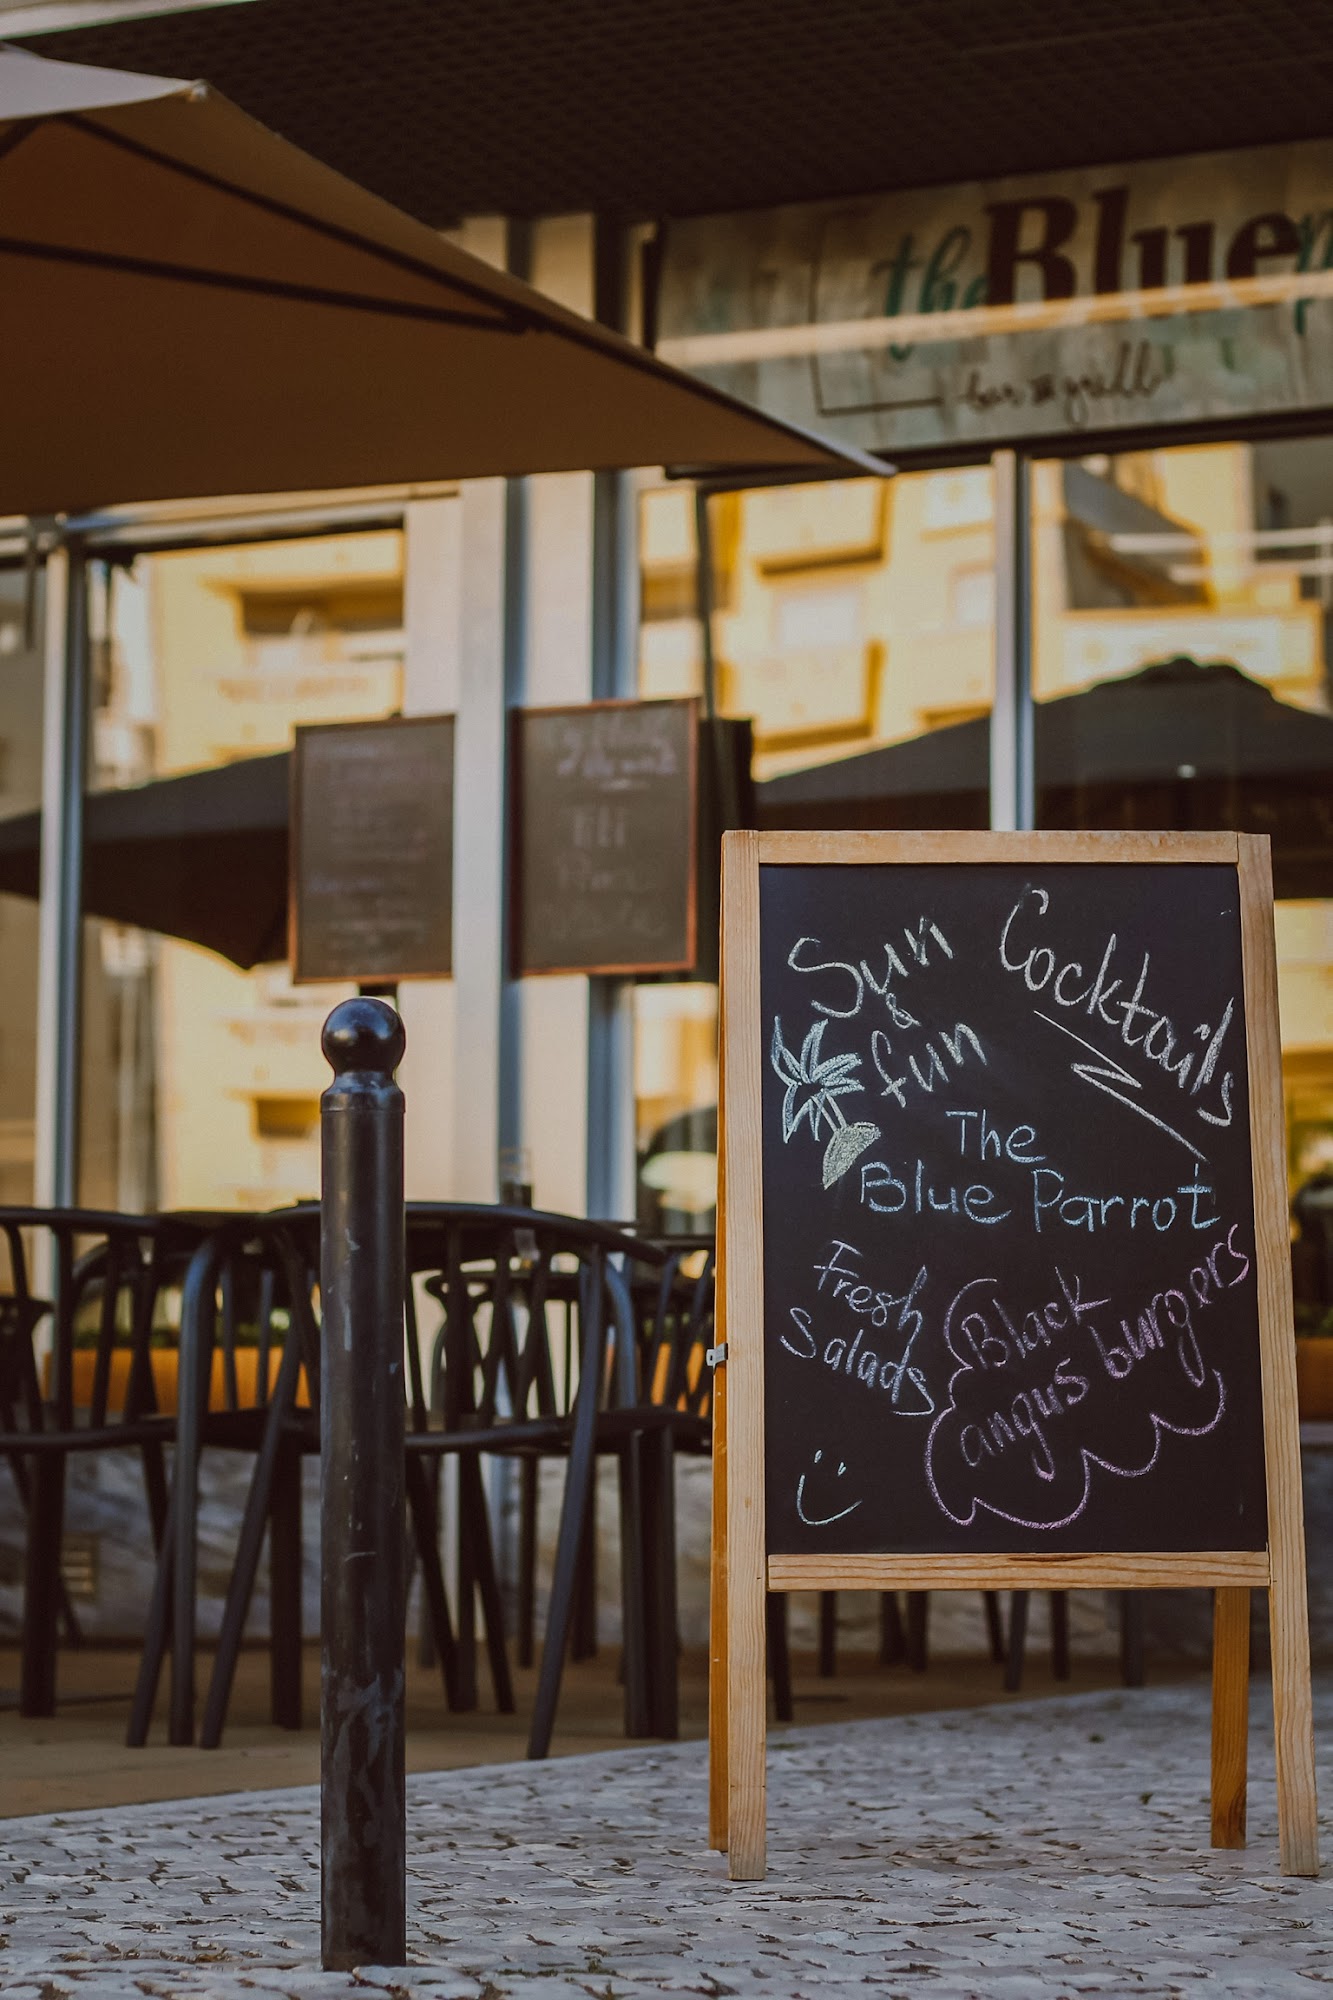 the Blue
bar & grill
Sun
&
fun
Cocktails
The
Blue Parrot
Fresh
Salads
Black
angus burgers